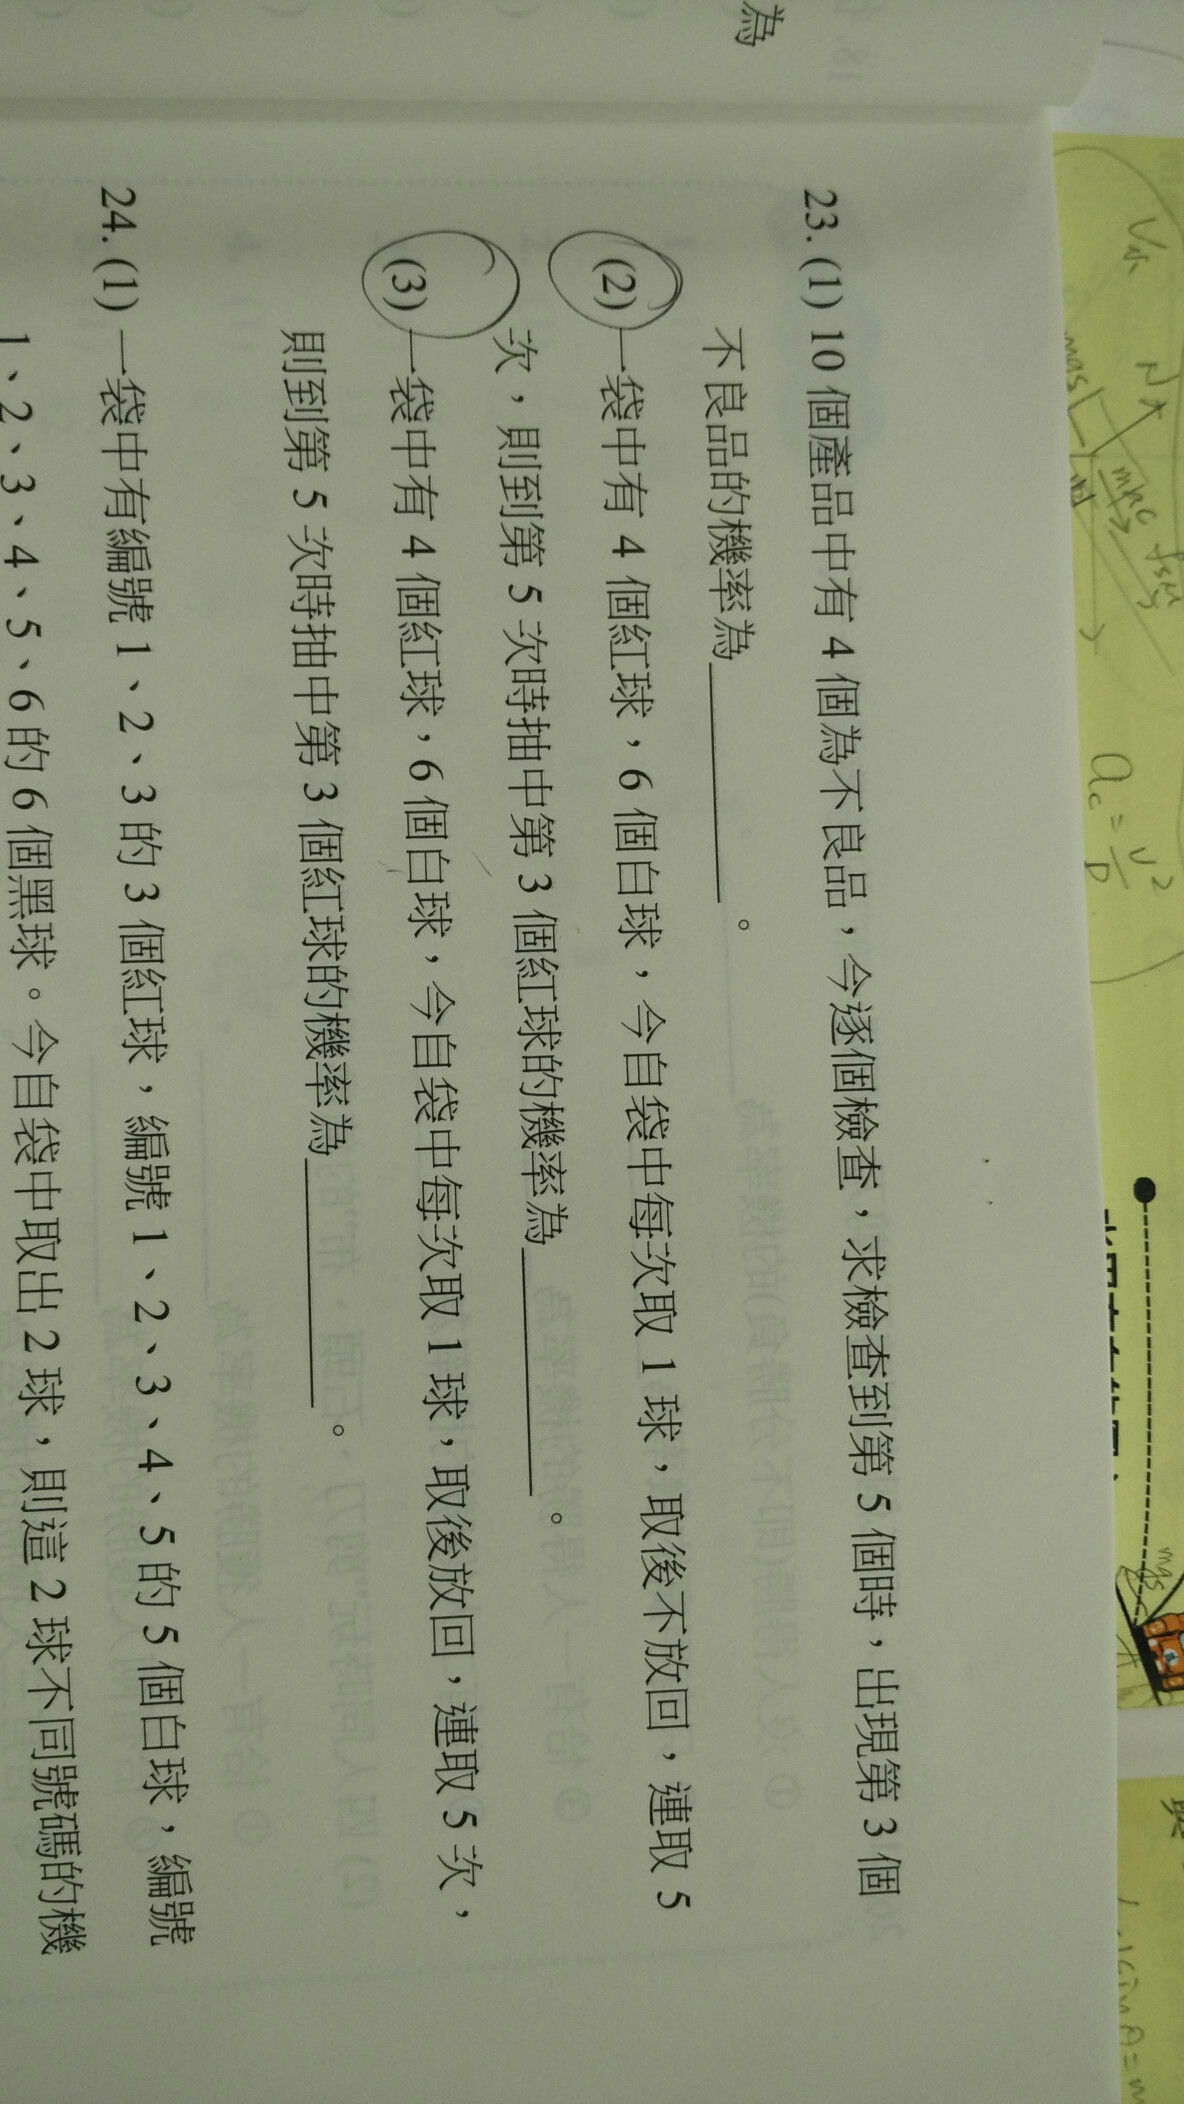 為
23. (1) 10 個產品中有 4 個為不良品，今逐個檢查，求檢查到第 5 個時，出現第 3 個
不良品的機率為＿＿＿＿＿。
(2) 一袋中有 4 個紅球，6 個白球，今自袋中每次取 1 球，取後不放回，連取 5
次，則到第 5 次時抽中第 3 個紅球的機率為＿＿＿＿＿。
(3) 一袋中有 4 個紅球，6 個白球，今自袋中每次取 1 球，取後放回，連取 5 次，
則到第 5 次時抽中第 3 個紅球的機率為＿＿＿＿＿。
24. (1) 一袋中有編號 1、2、3 的 3 個紅球，編號 1、2、3、4、5 的 5 個白球，編號
1、2、3、4、5、6 的 6 個黑球。今自袋中取出 2 球，則這 2 球不同號碼的機